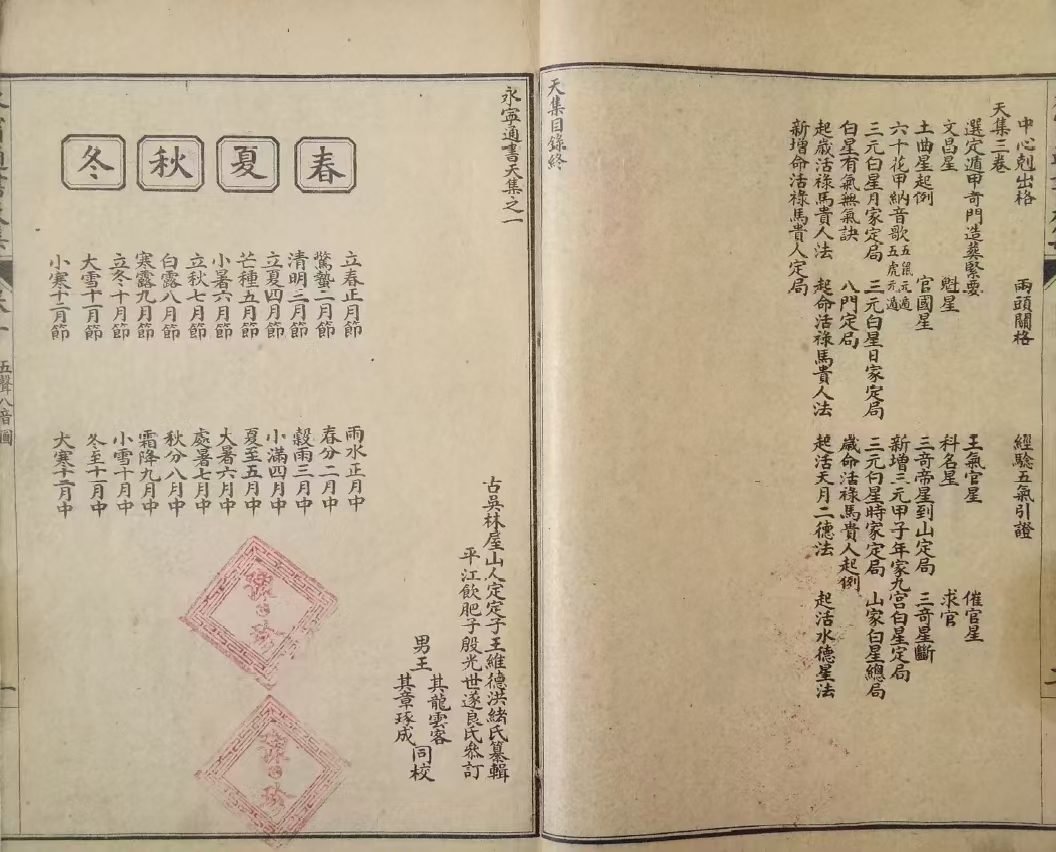 中心剋出格 兩頭關格 經驗五氣引證
天集三卷
選定遁甲奇門造葬緊要 王氣官星 催官星
文昌星 魁星 科名星 求官
土曲星起例 官國星 三奇帝星到山定局 三奇星斷
六十花甲納音歌 五鼠元遁 五虎元遁 新增三元甲子年家九宮白星定局
三元白星月家定局 三元白星日家定局 三元白星時家定局 山家白星總局
白星有氣無氣訣 八門定局 歲命活祿馬貴人起例
起歲活祿馬貴人法 起命活祿馬貴人法 起活天月二德法 起活水德星法
新增命活祿馬貴人定局
天集目錄終
永寧通書天集之一
古吳林屋山人定定子王維德洪緒氏纂輯
平江飲肥子殷光世遂良氏叅訂
男王 其龍雲客 其章琢成 同校
春 夏 秋 冬
立春正月節 雨水正月中
驚蟄二月節 春分二月中
清明三月節 穀雨三月中
立夏四月節 小滿四月中
芒種五月節 夏至五月中
小暑六月節 大暑六月中
立秋七月節 處暑七月中
白露八月節 秋分八月中
寒露九月節 霜降九月中
立冬十月節 小雪十月中
大雪十一月節 冬至十一月中
小寒十二月節 大寒十二月中
五聲八音圖
一